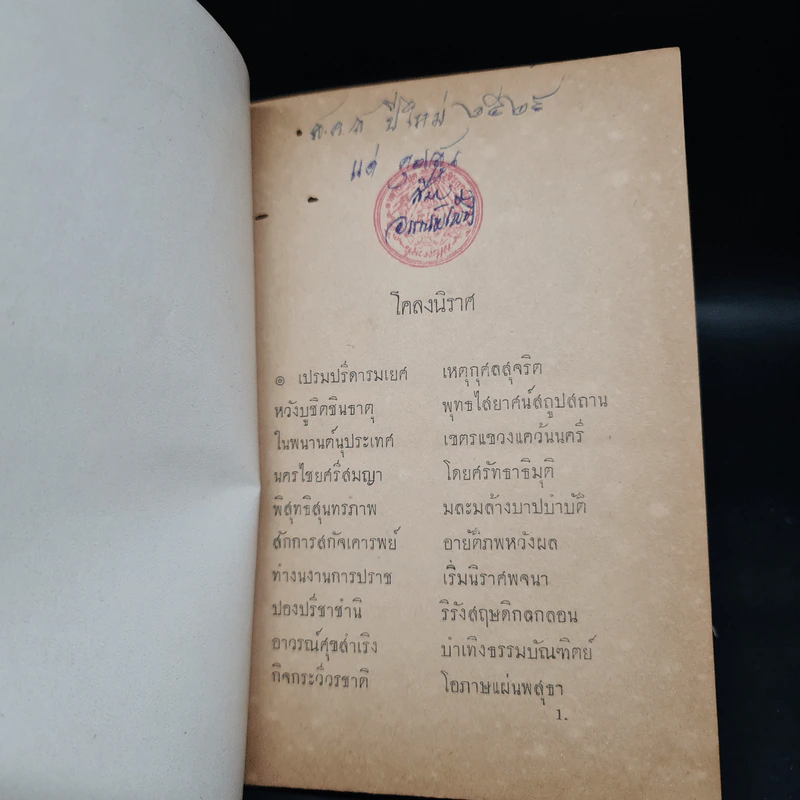 ส.ค.ส ปีใหม่ ๒๕๒๕
แด่
โคลงนิราศ
๏ เปรมปรีดารมเยศ เหตุกุศลสุจริต
หวังบูชิตชินธาตุ พุทธไสยาศน์สถูปสถาน
ในพนานต์นุประเทศ เขตรแขวงแคว้นนครี
นครไชยศรีสมญา โดยศรัทธาธิมุติ
พิสุทธิสุนทรภาพ มละมล้างบาปบำบัติ
สักการสกัจเคารพย์ อายัติภพหวังผล
ทำงนงานการปราช เริ่มนิราศพจนา
ปองปรีชาชำนิ ริรังสฤษดิกลกลอน
อาวรณ์ศุขสำเริง บำเทิงธรรมบัณฑิตย์
กิจกระวีวรชาติ โอภาษแผ่นพสุธา
1.